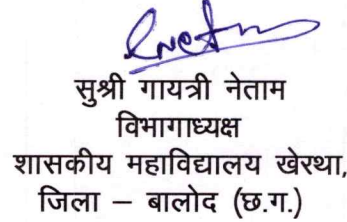 सुश्री गायत्री नेताम
विभागाध्यक्ष
शासकीय महाविद्यालय खेरथा,
जिला – बालोद (छ.ग.)